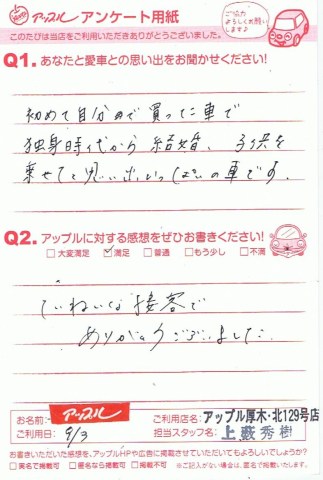 アップル アンケート用紙
ご協力よろしくお願いします♪
このたびは当店をご利用いただきありがとうございました。
Q1. あなたと愛車との思い出をお聞かせください!
初めて自分で買った車で
独身時代から結婚、子供を
乗せてと思い出いっぱいの車です。
Q2. アップルに対する感想をぜひお書きください!
□大変満足 ☑満足 □普通 □もう少し □不満
ていねいな接客で
ありがとうございました。
お名前: アップル ご利用店名: アップル厚木・北129号店
ご利用日: 9/3 担当スタッフ名: 上藪秀樹
お書きいただいた感想を、アップルHPや広告に掲載させていただいてもよろしいでしょうか?
□実名で掲載可 □匿名なら掲載可 □掲載不可 ※ご記入がない場合は、匿名で掲載いたします。